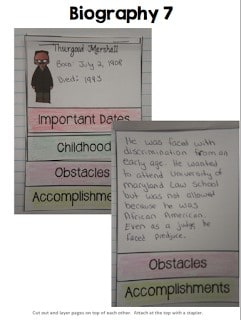 Biography 7
Thurgood Marshall
Born: July 2, 1908
Died: 1993
Important Dates
Childhood
Obstacles
Accomplishments
He was faced with
discrimination from an
early age. He wanted
to attend University of
Maryland Law School
but was not allowed
because he was
African American.
Even as a judge he
faced prejudice.
Obstacles
Accomplishments
Cut out and layer pages on top of each other. Attach at the top with a stapler.